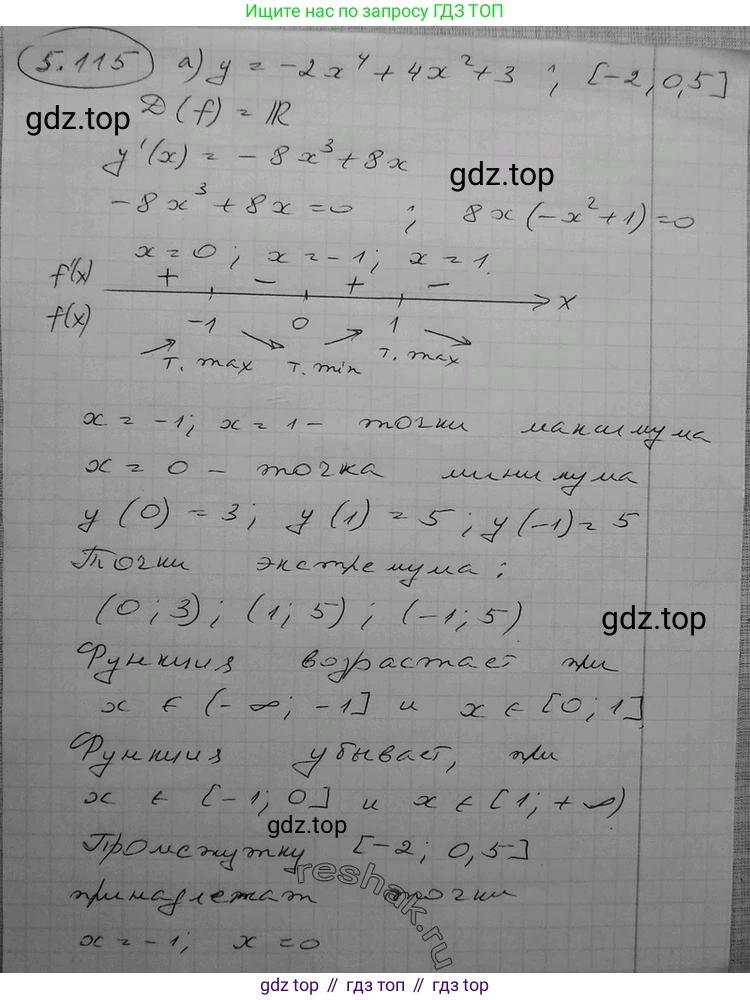 Больше решений по запросу ГДЗ ТОП
5.115 а) y = -2x⁴ + 4x² + 3 ; [-2; 0,5]
gdz.top D(f) = ℝ
y'(x) = -8x³ + 8x gdz.top
-8x³ + 8x = 0 ; 8x(-x² + 1) = 0
x = 0; x = -1; x = 1.
f'(x) + - + -
x
f(x) -1 0 1
т. max т. min т. max
x = -1; x = 1 - точки максимума
x = 0 - точка минимума
y(0) = 3; y(1) = 5; y(-1) = 5
Точки экстремума:
(0; 3); (1; 5); (-1; 5) gdz.top
Функция возрастает при
x ∈ (-∞; -1] и x ∈ [0; 1]
Функция убывает, при
x ∈ [-1; 0] и x ∈ [1; +∞)
gdz.top
Промежутку [-2; 0,5]
reshak.ru
принадлежат точки
x = -1; x = 0
gdz.top // гдз топ // gdz.top